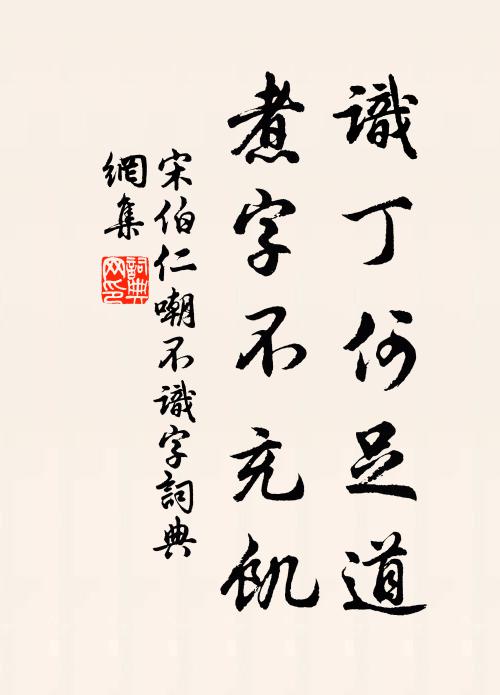 識丁何足道
煮字不充飢
宋伯仁嘲不識字詞典
網集
詞典
网印